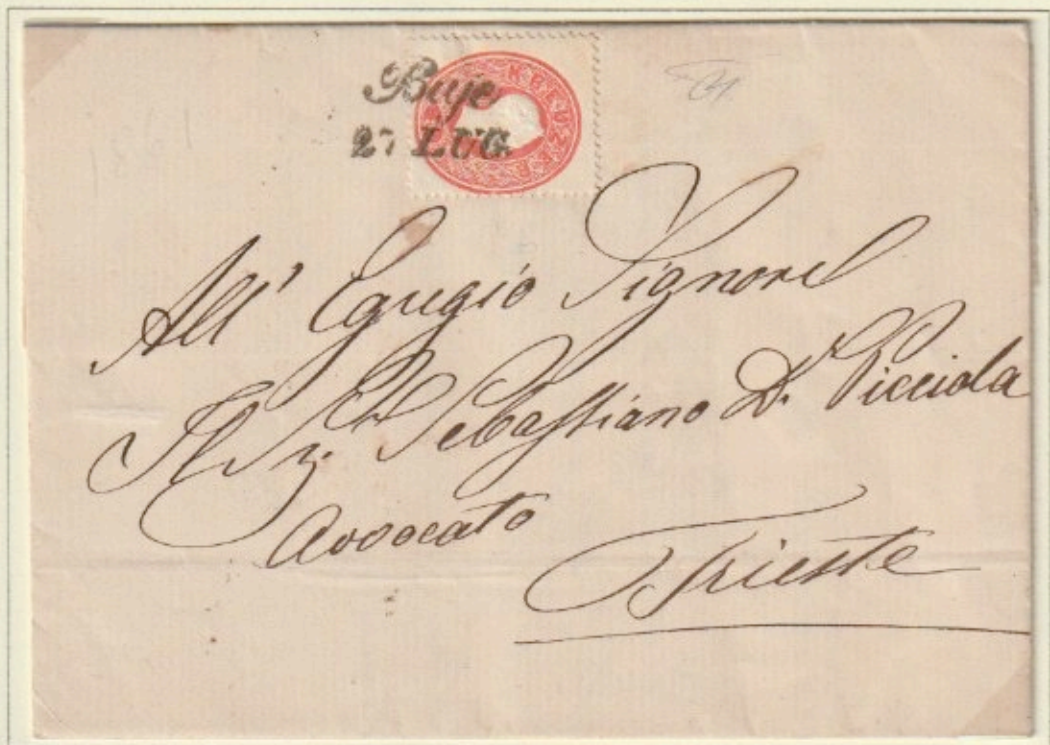 Buje
27 LUG.
KREUZER
All' Egregio Signore
Il Sr. Sebastiano Dr. Picciola
Avvocato
Trieste